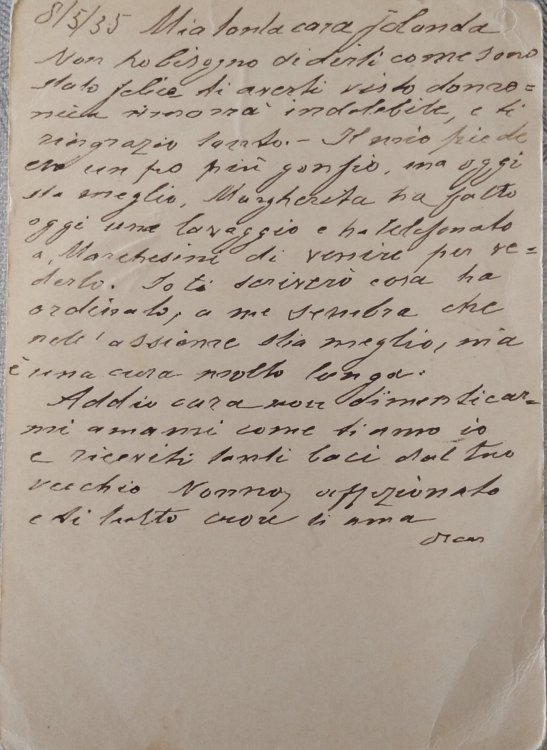 8/5/35 Mia tanta cara Jolanda
Non ho bisogno di dirti come sono
stato felice di averti visto
rimorrà indelebile, e ti
ringrazio tanto. - Il mio piede
era un po più gonfio, ma oggi
sta meglio, Margherita ha fatto
oggi une lavaggio e ha telefonato
a, Marchesini di venire per ve=
derlo. Io ti scriverò cosa ha
ordinato, a me sembra che
nell'assieme stia meglio, ma
è una cura molto lunga.
Addio cara non dimenticar=
mi amami come ti amo io
e riceviti tanti baci dal tuo
vecchio Nonno, affezionato
e di tutto cuore ti ama